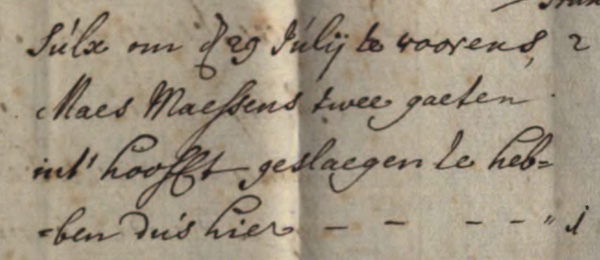 Sulx om d' 29 Julij te voorens, 2
Maes Maessens twee gaeten
int' hoofft geslaegen te heb=
=ben dus hier - - - - " j